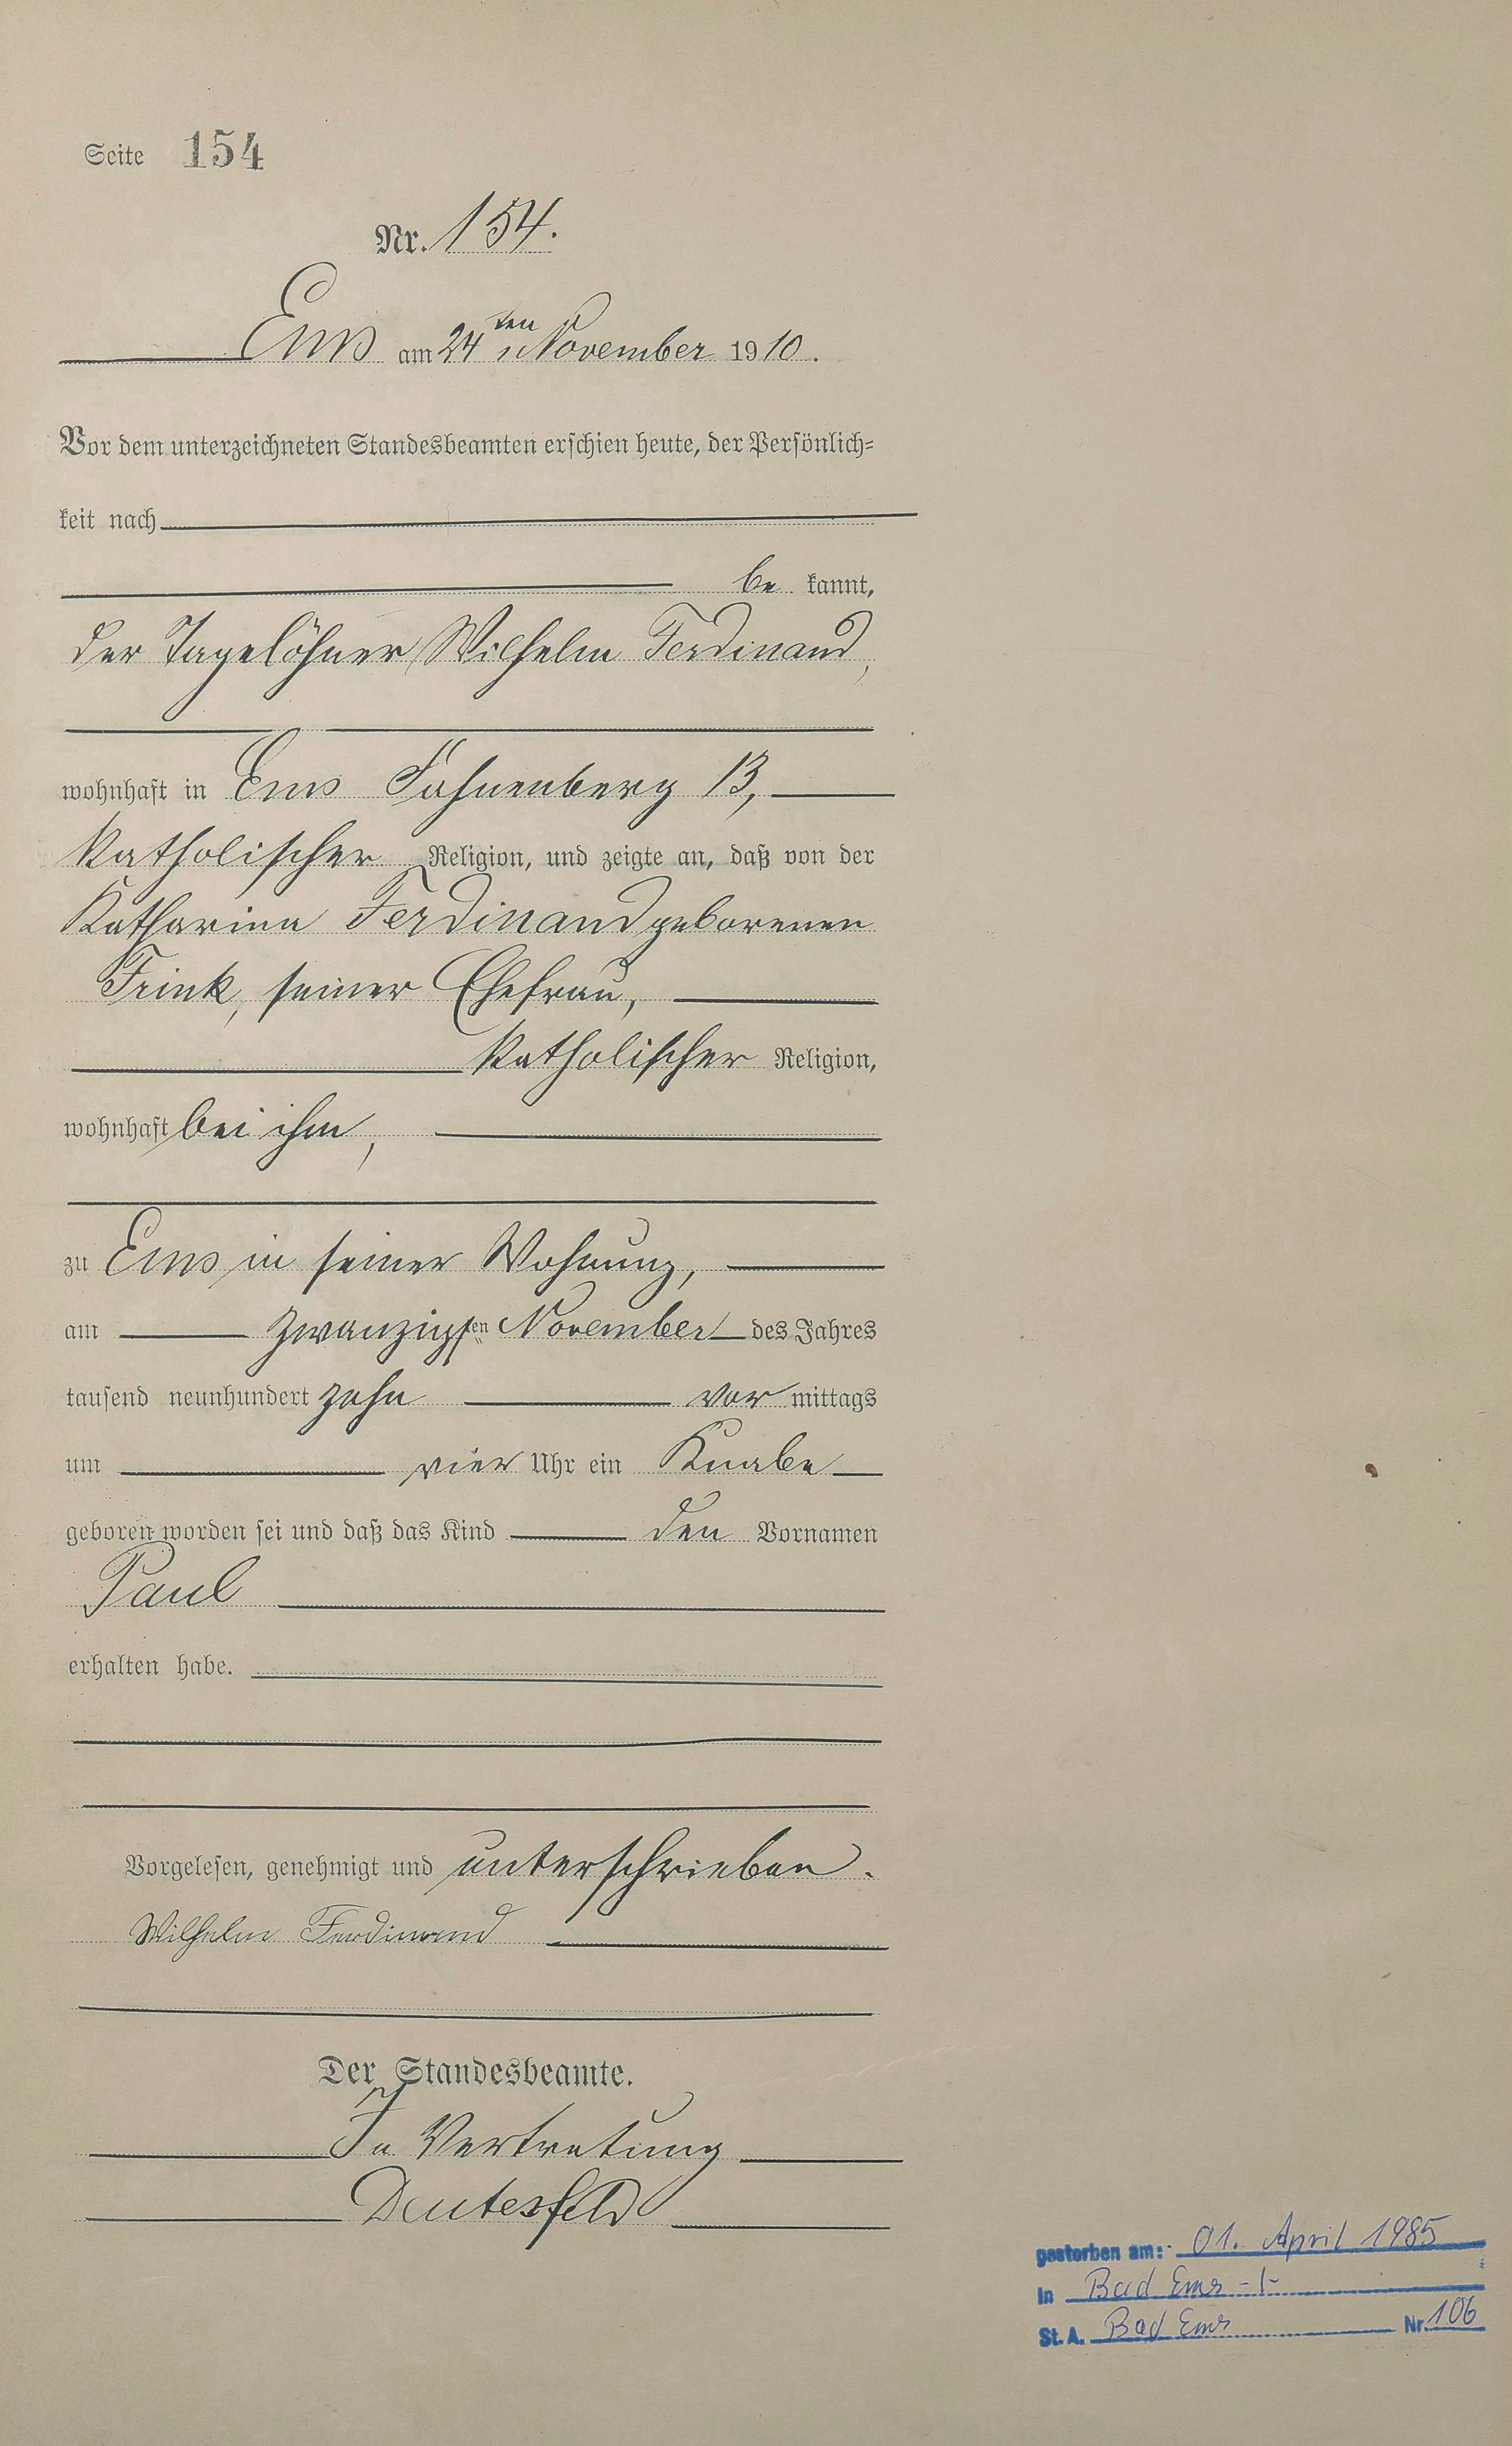 Seite 154
Nr. 154.
Ems am 24ten November 1910.
Vor dem unterzeichneten Standesbeamten erschien heute, der Persönlich-
keit nach
be kannt,
der Tagelöhner Wilhelm Ferdinand,
wohnhaft in Ems Fahnenberg 13,
katholischer Religion, und zeigte an, daß von der
Katharina Ferdinand geborenen
Frink, seiner Ehefrau,
katholischer Religion,
wohnhaft bei ihm,
zu Ems in seiner Wohnung,
am zwanzigsten November des Jahres
tausend neunhundert zehn vor mittags
um vier Uhr ein Knabe
geboren worden sei und daß das Kind den Vornamen
Paul
erhalten habe.
Vorgelesen, genehmigt und unterschrieben.
Wilhelm Ferdinand
Der Standesbeamte.
In Vertretung
Deutesfeld
gestorben am: 01. April 1985
in Bad Ems -1-
St. A. Bad Ems Nr. 106